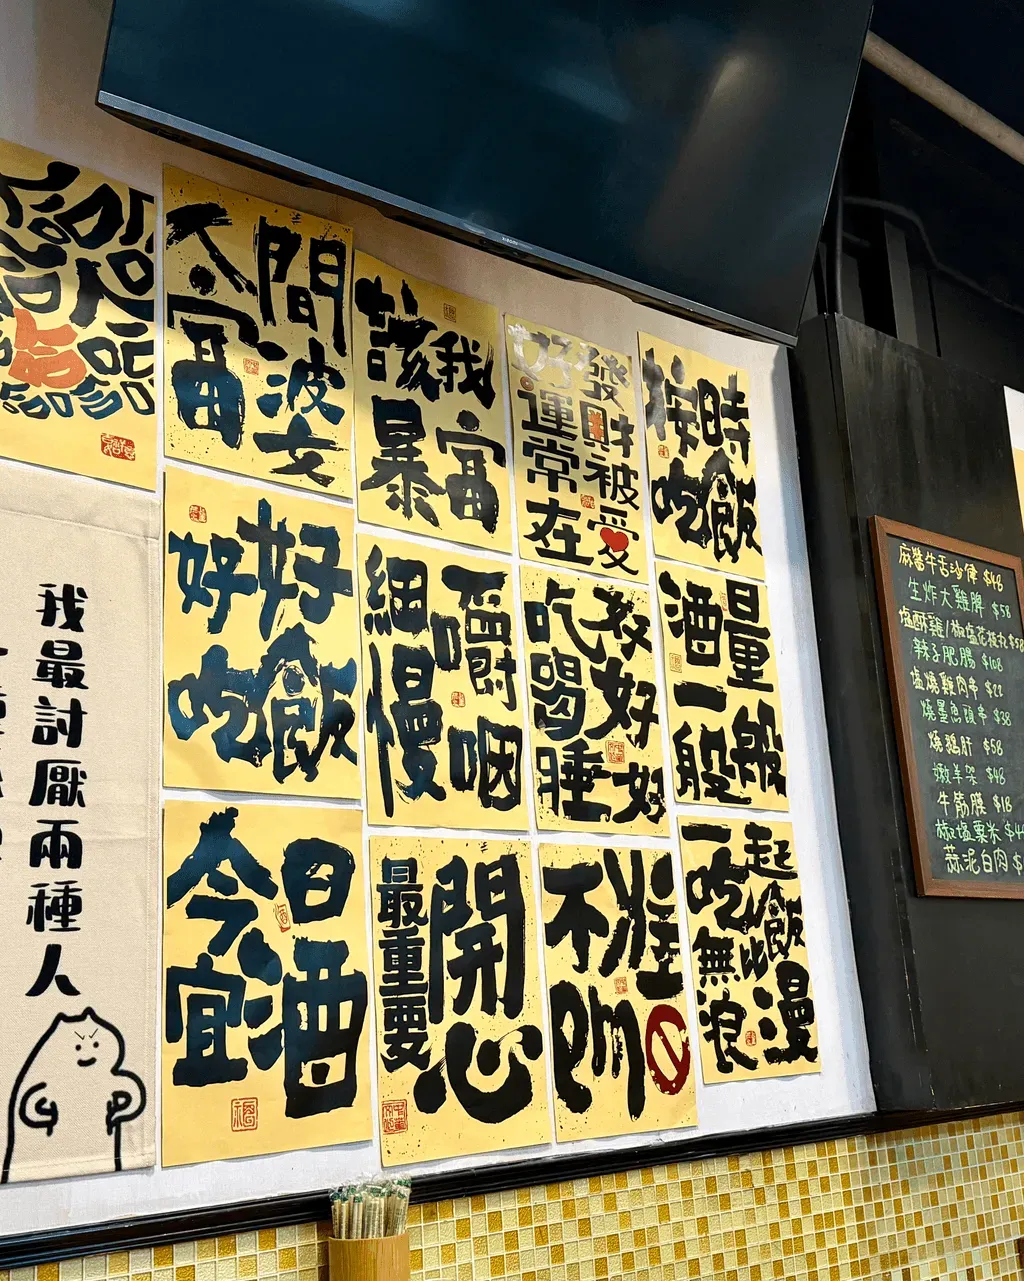 人間
富婆
該我
暴富
好運常在
發財被愛
按時
吃飯
好好
吃飯
細嚼
慢咽
吃喝睡
好好好
酒量
一般般
今日
宜酒
最重要
開心
不准
emo
一起
吃飯
無比
浪漫
我最討厭兩種人
XIAOMI
麻醬牛舌沙律 $48
生炸大雞髀 $58
塩酥雞/椒塩花枝丸 $58
辣子肥腸 $108
塩燒雞肉串 $22
燒墨魚頭串 $38
燒鵝肝 $58
嫩羊架 $48
牛筋膜 $18
椒塩粟米 $4
蒜泥白肉 $